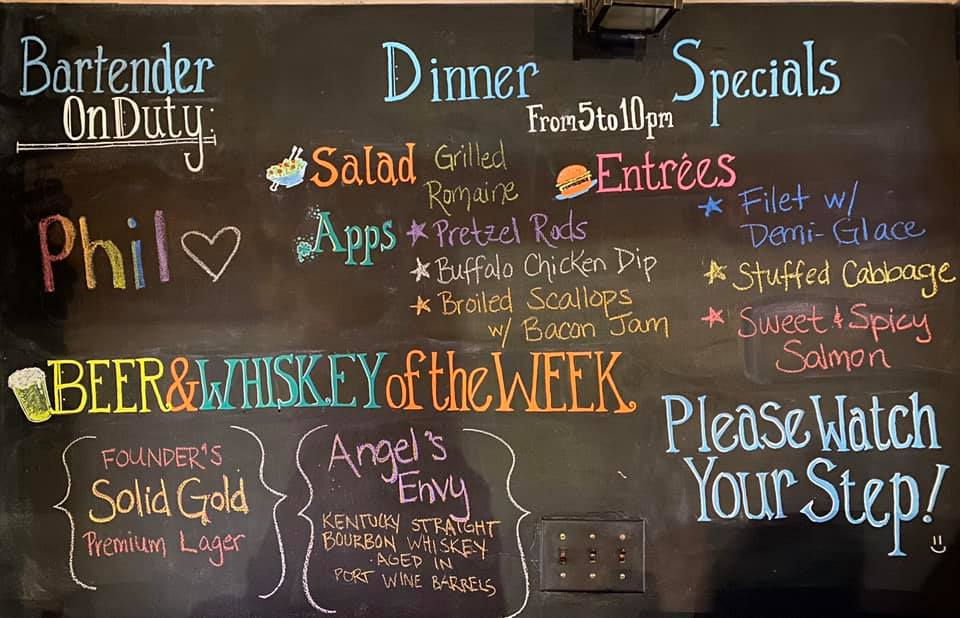 Bartender
On Duty:
Phil
Dinner Specials
From 5 to 10pm
Salad Grilled
Romaine
Apps Pretzel Rods
Buffalo Chicken Dip
Broiled Scallops
w/ Bacon Jam
Entrées
Filet w/
Demi-Glace
Stuffed Cabbage
Sweet & Spicy
Salmon
BEER & WHISKEY of the WEEK
FOUNDER'S
Solid Gold
Premium Lager
Angel's
Envy
KENTUCKY STRAIGHT
BOURBON WHISKEY
AGED IN
PORT WINE BARRELS
Please Watch
Your Step!